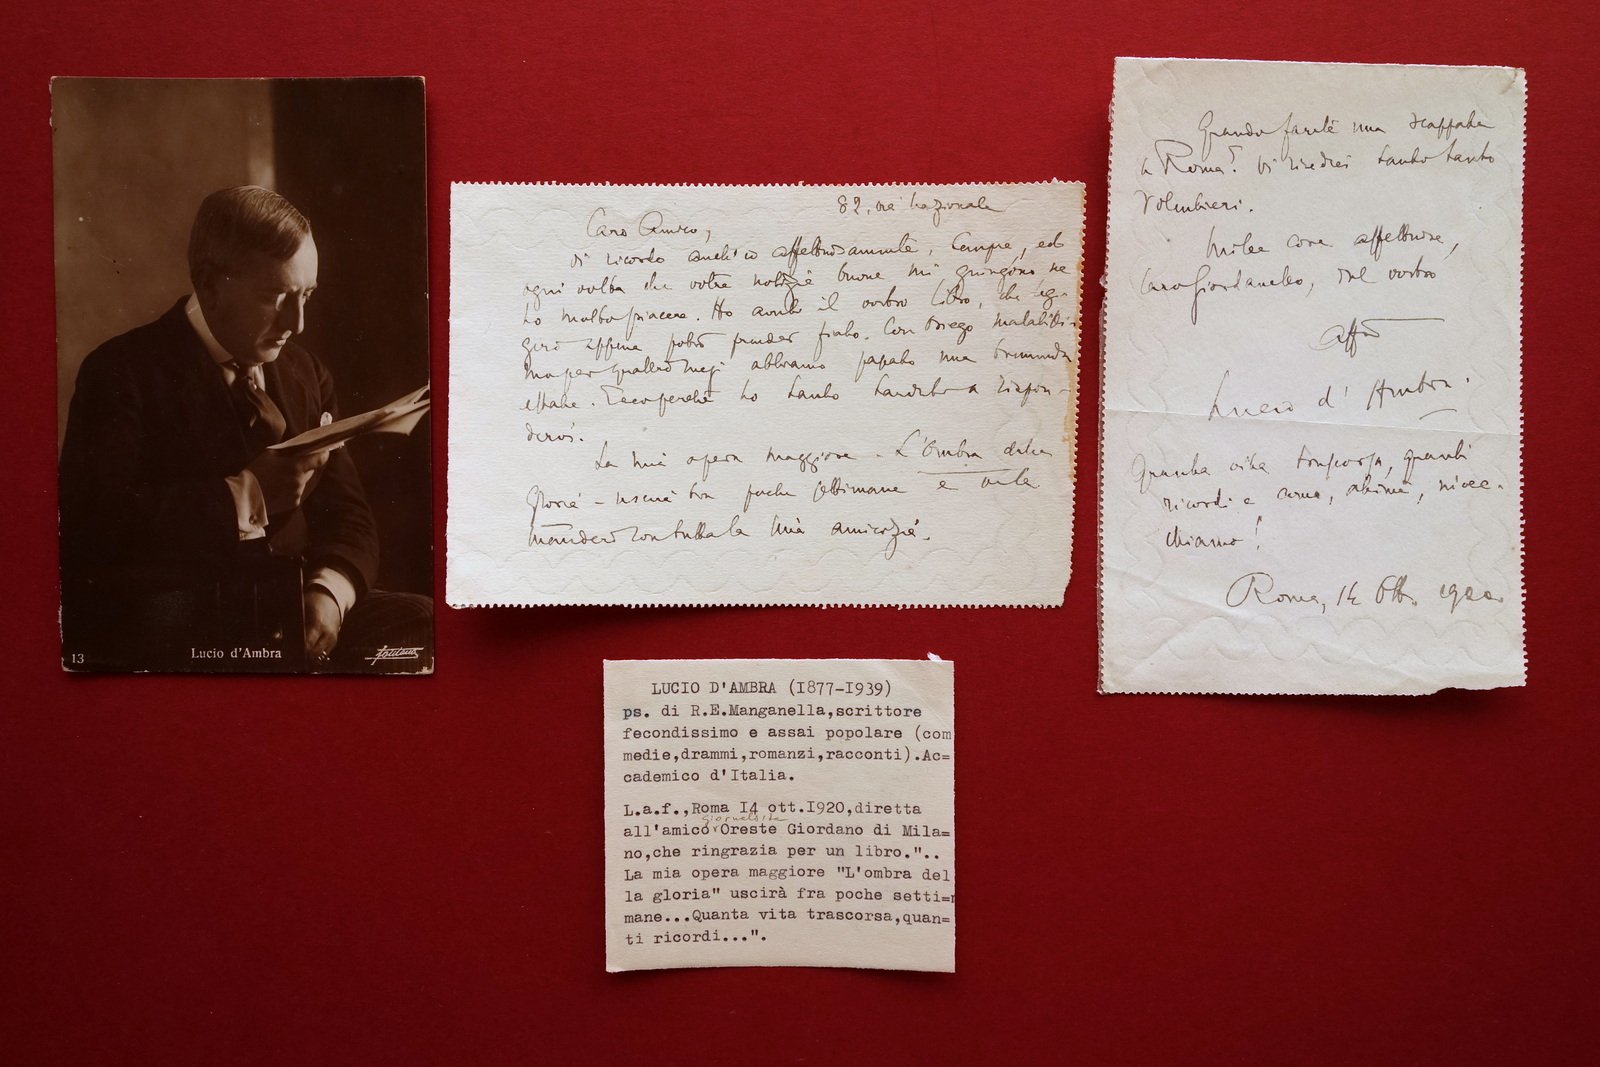 13
Lucio d'Ambra
82, via Nazionale
Caro Amico,
vi ricordo anch'io affettuosamente, sempre, ed
ogni volta che vostre notizie buone mi giungono ne
ho molto piacere. Ho avuto il vostro libro, che leg-
gerò appena potrò prender fiato. Con
per quattro mesi abbiamo papato una tremenda
estate. Ecco perchè ho tanto tardato a rispon-
dervi.
La mia opera maggiore - L'Ombra della
Gloria - uscirà tra poche settimane e ve la
manderò con tutta la mia amicizia.
Quando farete una scappata
a Roma? Vi rivedrei tanto tanto
volentieri.
Mille cose affettuose,
caro, dal vostro
affmo
Lucio d'Ambra.
Quanta vita trascorsa, quanti
ricordi e come, ahimè, invec-
chiamo!
Roma, 14 Ott. 1920
LUCIO D'AMBRA (I877-I939)
ps. di R.E.Manganella,scrittore
fecondissimo e assai popolare (com
medie,drammi,romanzi,racconti).Ac=
cademico d'Italia.
L.a.f.,Roma I4 ott.I920,diretta
giornalista
all'amico Oreste Giordano di Mila=
no,che ringrazia per un libro."..
La mia opera maggiore "L'ombra del
la gloria" uscirà fra poche setti=
mane...Quanta vita trascorsa,quan=
ti ricordi...".